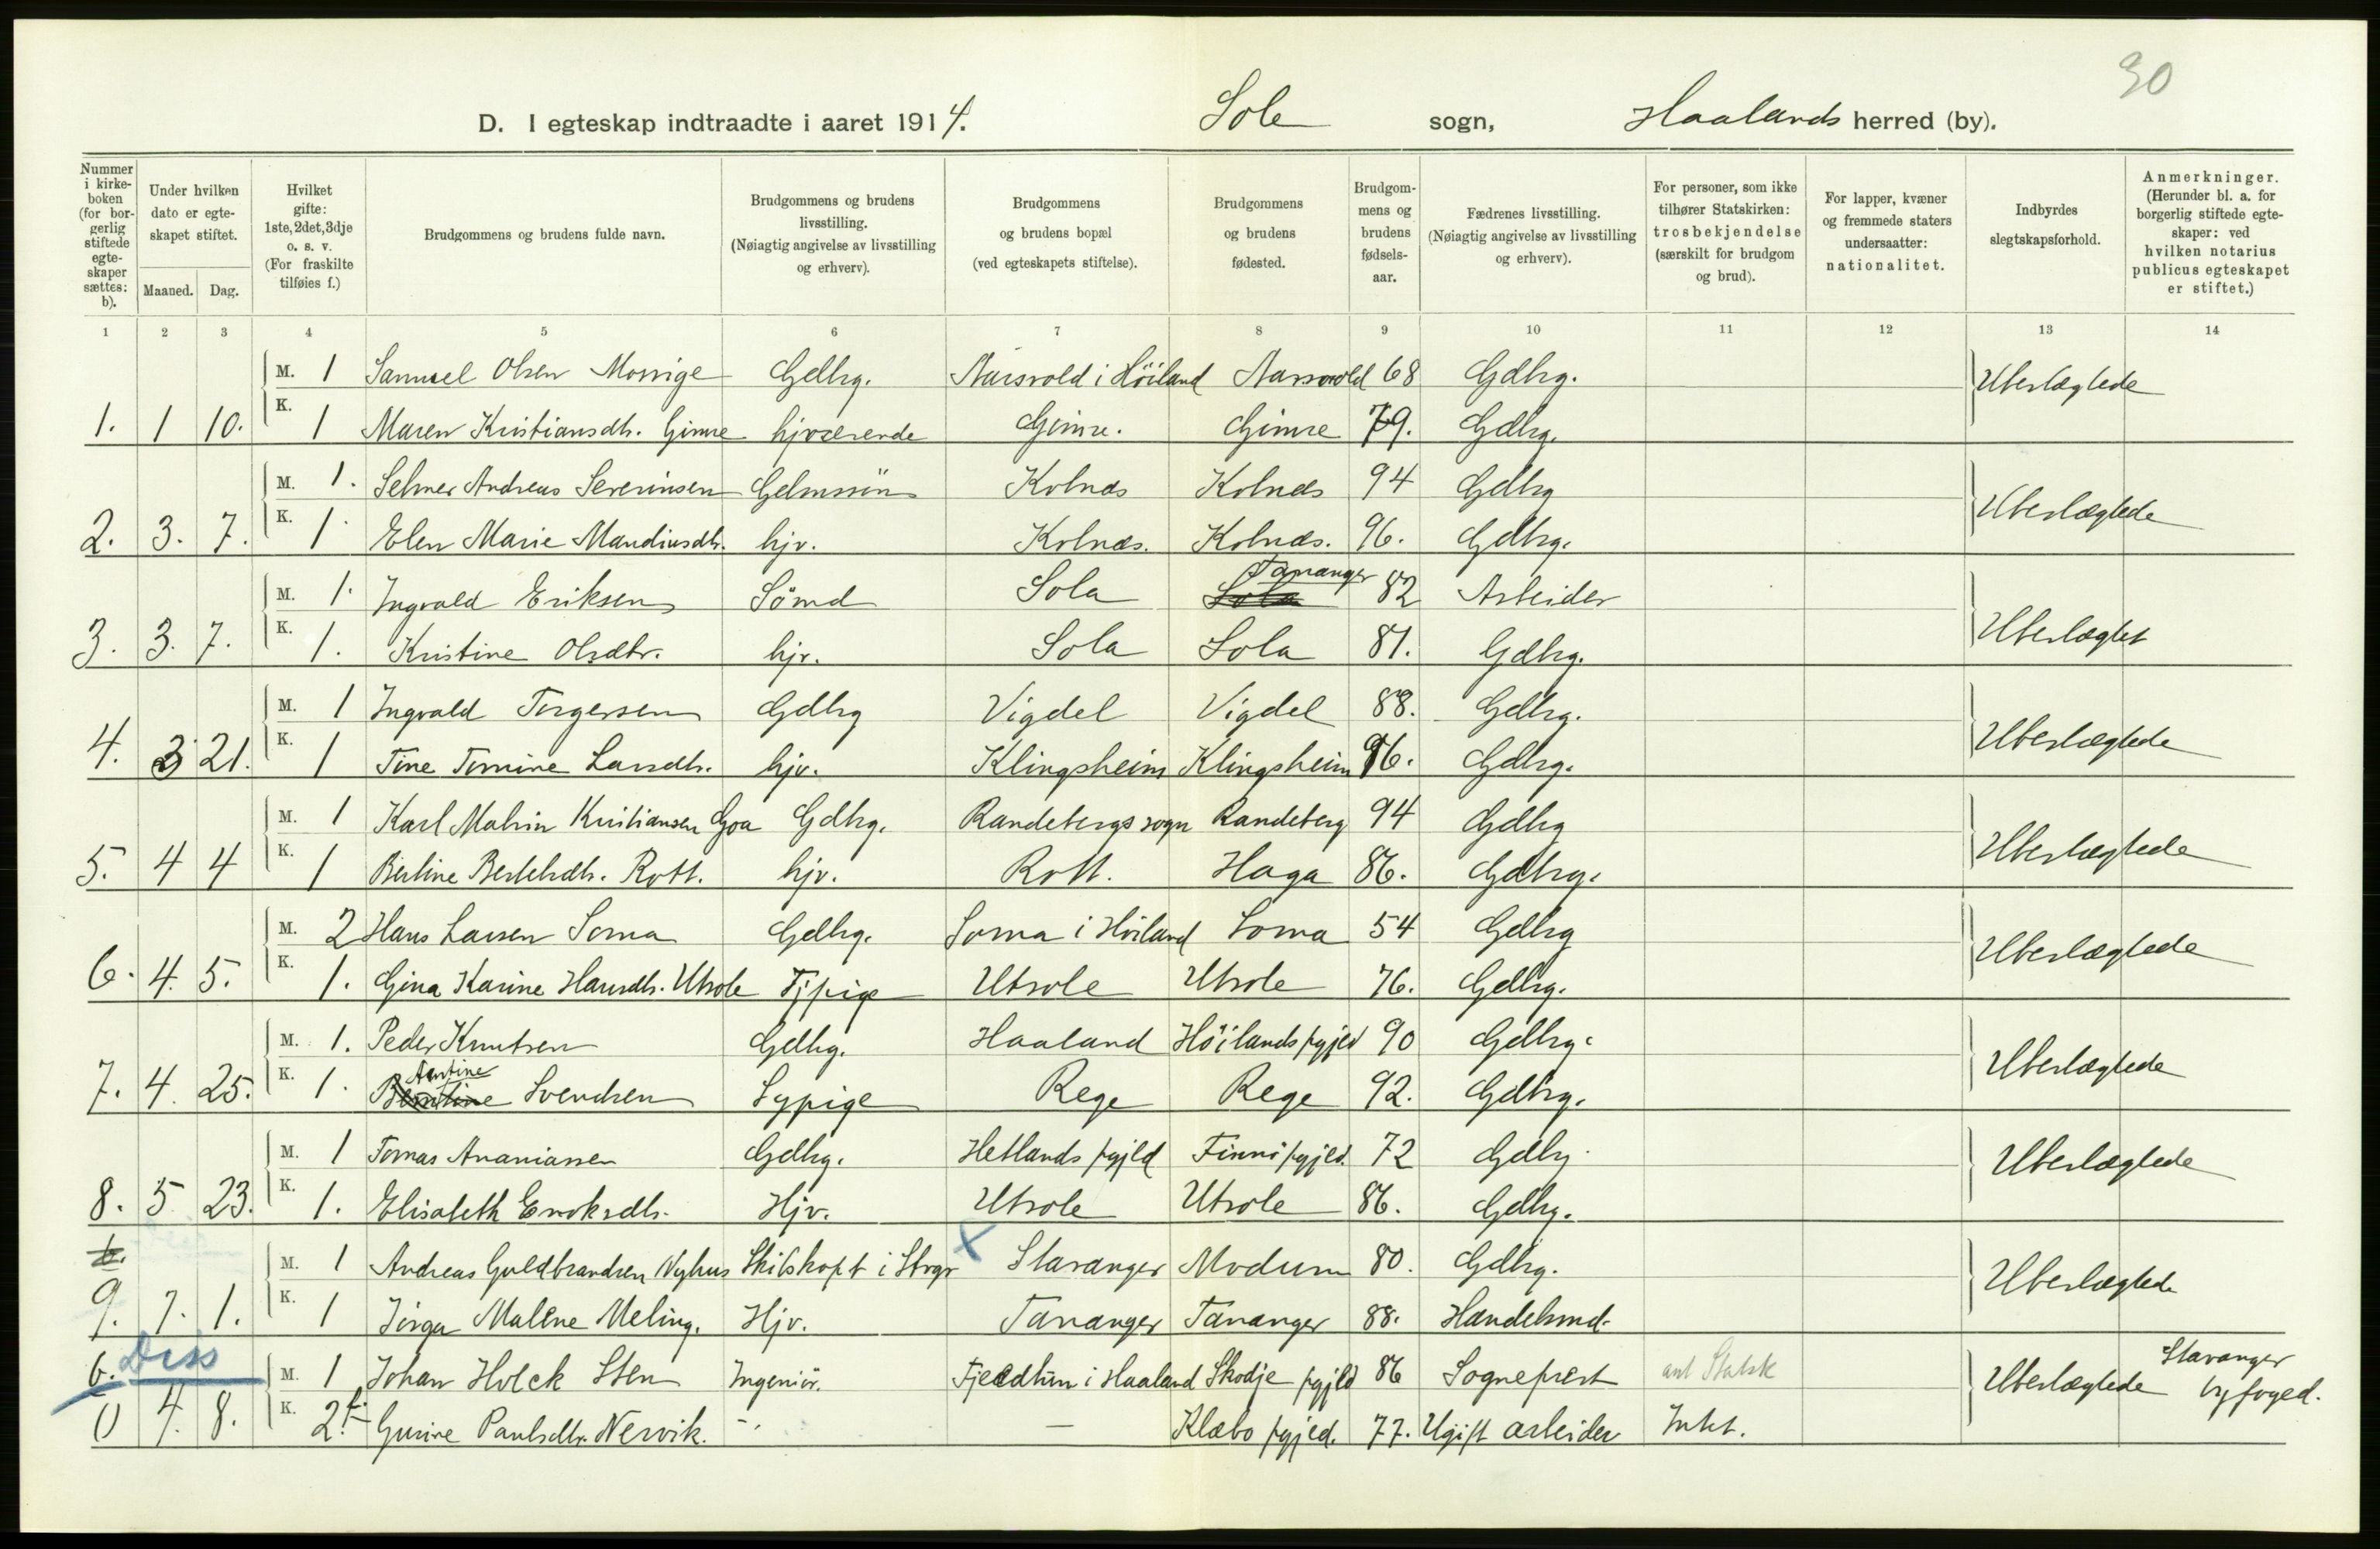 30
D. I egteskap indtraadte i aaret 1914. Sole sogn, Haalands herred (by).
Nummer i kirkeboken (for borgerlig stiftede egteskaper sættes: b). Under hvilken dato er egteskapet stiftet. Maaned. Dag. Hvilket gifte: 1ste, 2det, 3dje o. s. v. (For fraskilte tilføies f.) Brudgommens og brudens fulde navn. Brudgommens og brudens livsstilling. (Nøiagtig angivelse av livsstilling og erhverv). Brudgommens og brudens bopæl (ved egteskapets stiftelse). Brudgommens og brudens fødested. Brudgommens og brudens fødselsaar. Fædrenes livsstilling. (Nøiagtig angivelse av livsstilling og erhverv). For personer, som ikke tilhører Statskirken: trosbekjendelse (særskilt for brudgom og brud). For lapper, kvæner og fremmede staters undersaatter: nationalitet. Indbyrdes slegtskapsforhold. Anmerkninger. (Herunder bl. a. for borgerlig stiftede egteskaper: ved hvilken notarius publicus egteskapet er stiftet.)
1 2 3 4 5 6 7 8 9 10 11 12 13 14
M. 1 Samuel Olsen Mossige Gdbrg. Aarsvold i Höiland Aarsvold 68 Gdbrg. Ubeslægtede
1. 1 10. K. 1 Maren Kristiansdtr. Gimre hjværende Gimre. Gimre 79. Gdbrg.
M. 1. Selmer Andreas Severinsen Kolnæs Kolnæs 94 Gdbrg Ubeslægtede
2. 3. 7. K. 1 Elen Marie Mandiusdtr. hjv. Kolnæs. Kolnæs. 96. Gdbrg.
M. 1. Ingvald Eriksen Sömd Sola Sola Tananger 82 Arbeider Ubeslægtet
3. 3. 7. K. 1. Kristine Olsdtr. hjv. Sola Sola 81. Gdbrg.
M. 1 Ingvald Torgersen Gdbrg Vigdel Vigdel 88. Gdbrg. Ubeslægtede
4. 3 21. K. 1 Tine Tomine Larsdtr. hjv. Klingsheim Klingsheim 96. Gdbrg.
M. 1 Karl Malvin Kristiansen Goa Gdbrg. Randebergs sogn Randeberg 94 Gdbrg Ubeslægtede
5. 4 4 K. 1 Bertine Bertelsdtr. Rott. hjv. Rott. Haga 86. Gdbrg.
M. 2 Hans Larsen Soma Gdbrg. Soma i Höiland Soma 54 Gdbrg Ubeslægtede
6. 4. 5. K. 1. Gina Karine Hansdtr. Utsole Tjpige Utsole Utsole 76. Gdbrg.
M. 1. Peder Knutsen Gdbrg. Haaland Höilands pgjld 90 Gdbrg. Ubeslægtede
7. 4. 25. K. 1. Berntine Antine Svendsen Sypige Rege Rege 92. Gdbrg.
M. 1 Tomas Ananiassen Gdbrg. Hetlands pgjld Finnö pgjld. 72 Gdbg. Ubeslægtede
8. 5 23. K. 1. Elisabeth Enoksdtr. Hjv. Utsole Utsole 86. Gdbrg.
b. M. 1 Andreas Guldbrandsen Nyhus Skibskapt i Stvgr X Stavanger Modum 80. Gdbrg. Ubeslægtede
9. 7. 1. K. 1 Jörga Malene Meling. Hjv. Tananger Tananger 88. Handelsmd.
b. Diss M. 1 Johan Holck Sten Ingeniör. Fjeldtun i Haaland Skodje pgjld 86 Sogneprest ant Statsk Ubeslægtede Stavanger byfoged.
0 4. 8. K. 2 f. Gurine Paulsdtr. Nervik. - — Klæbo pgjed. 77. Ugift arbeider Intet.